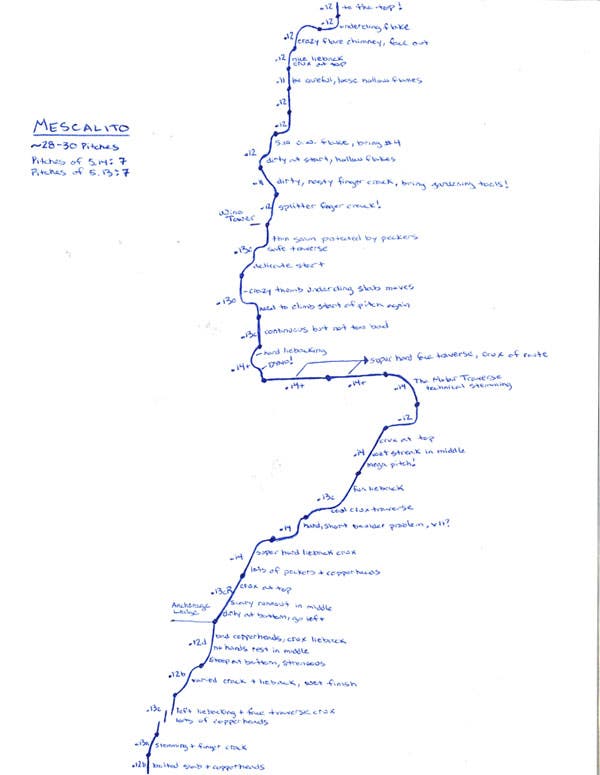 .12
to the top!
.12
undercling flake
.12
crazy flare chimney, fall out
.12
nice lieback
crux at top
.11
be careful, loose hollow flakes
.12
.12
5.10 o.w. flake, bring #4
.12
dirty at start, hollow flakes
MESCALITO
~28-30 Pitches
Pitches of 5.14: 7
Pitches of 5.13: 7
.11
dirty, nasty finger crack, bring gardening tools!
.12
splitter finger crack!
Wino
Tower
thin seam protected by peckers
.13c
safe traverse
delicate start
crazy thumb undercling slab moves
.13b
need to climb start of pitch again
.13c
continuous but not too bad
hard liebacking
.14+
dyno!
super hard face traverse, crux of route
.14+
.14+
.14
The Molar Traverse
technical stemming
.12
crux at top
.14
wet streak in middle
mega pitch!
fun lieback
.13c
cool crux traverse
.14
hard, short boulder problem, V11?
.14
super hard lieback crux
lots of peckers + copperheads
.13cR
crux at top
scary runout in middle
Anchorage
Ledge
dirty at bottom, go left
.12d
bad copperheads, crux lieback
no hands rest in middle
steep at bottom, strenuous
.12b
varied crack + lieback, wet finish
.13c
left liebacking + face traverse crux
lots of copperheads
.13a
stemming + finger crack
.12b
bolted slab + copperheads